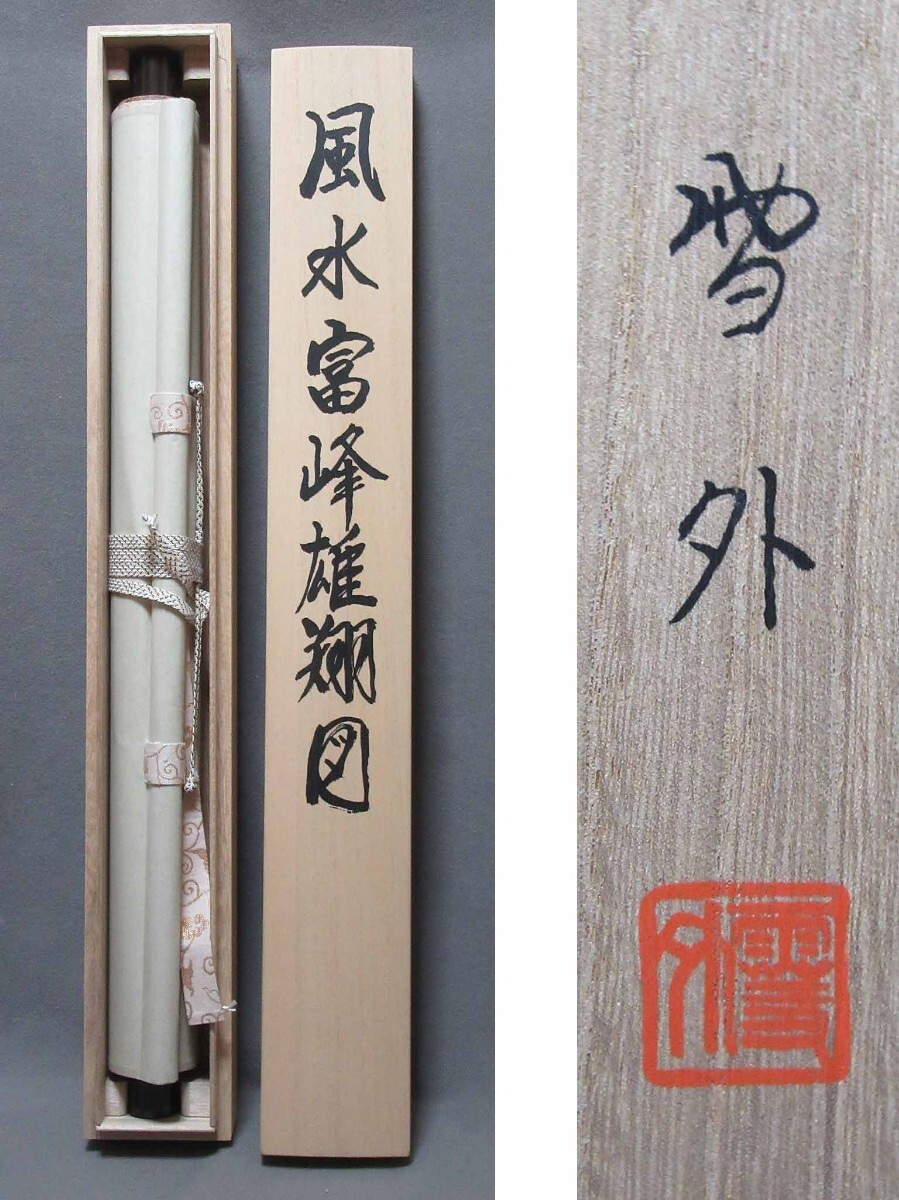 風水富峰雄翔図
雪外
雪外